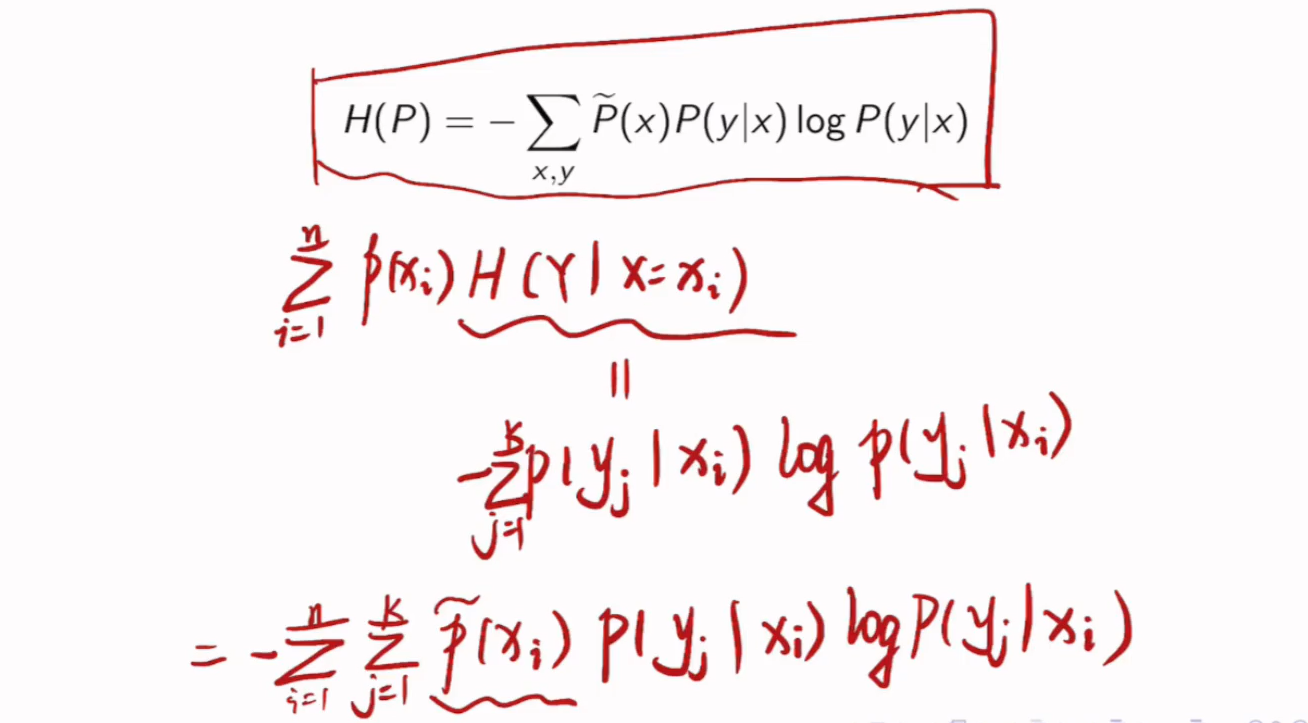 H(P) = − ∑_{x,y} P̃(x)P(y|x) log P(y|x)
∑_{i=1}^{n} p(x_i) H(Y|X=x_i)
||
-∑_{j=1}^{K} p(y_j|x_i) log p(y_j|x_i)
= -∑_{i=1}^{n} ∑_{j=1}^{K} p̃(x_i) p(y_j|x_i) log P(y_j|x_i)